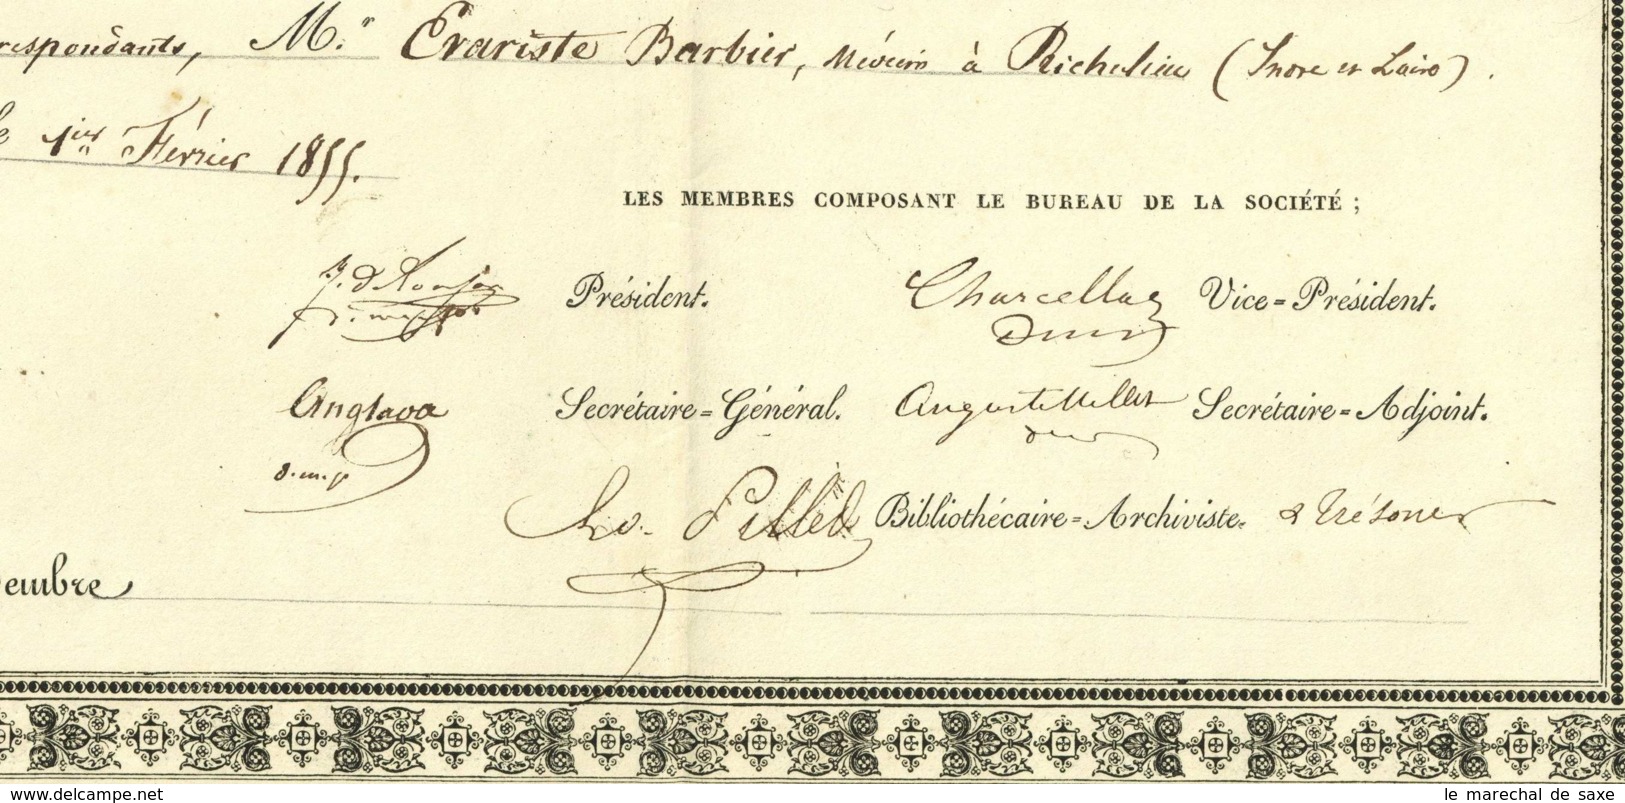 respondants, M.r Evariste Barbier, Médecin à Richelieu (Indre et Loire).
le 1ier Février 1855.
LES MEMBRES COMPOSANT LE BUREAU DE LA SOCIÉTÉ ;
Président. Charcellay Vice=Président.
Anglada Secrétaire=Général. Auguste Millet Secrétaire=Adjoint.
d.m.p
Pillet Bibliothécaire=Archiviste. & Trésorier
Membre
www.delcampe.net
le marechal de saxe